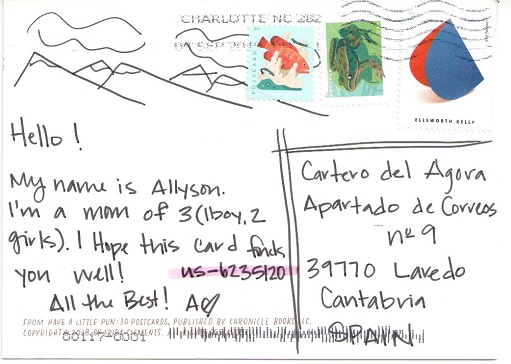 CHARLOTTE NC 282
POSTCARD
ELLSWORTH KELLY
Hello!
My name is Allyson.
I'm a mom of 3 (1boy, 2
girls). I Hope this card finds
you well!
us-6235120
All the Best! A♡
Cartero del Agora
Apartado de Correos
nº 9
39770 Laredo
Cantabria
SPAIN
FROM HAVE A LITTLE PUN: 30 POSTCARDS, PUBLISHED BY CHRONICLE BOOKS LLC.
COPYRIGHT © 2018 BY FRIDA CLEMENTS.
00117-0001